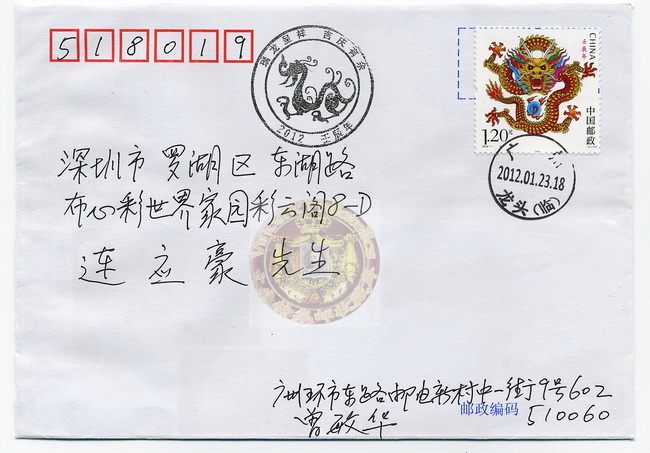 518019
瑞龙呈祥 吉庆有余
2012 壬辰年
CHINA
壬辰年
中国邮政
1.20元
广 州
2012.01.23.18
龙头(临)
深圳市罗湖区东湖路
布心彩世界家园彩云阁8-D
连应豪先生
广州环市东路邮电新村中一街9号602
邮政编码 510060
曾敏华